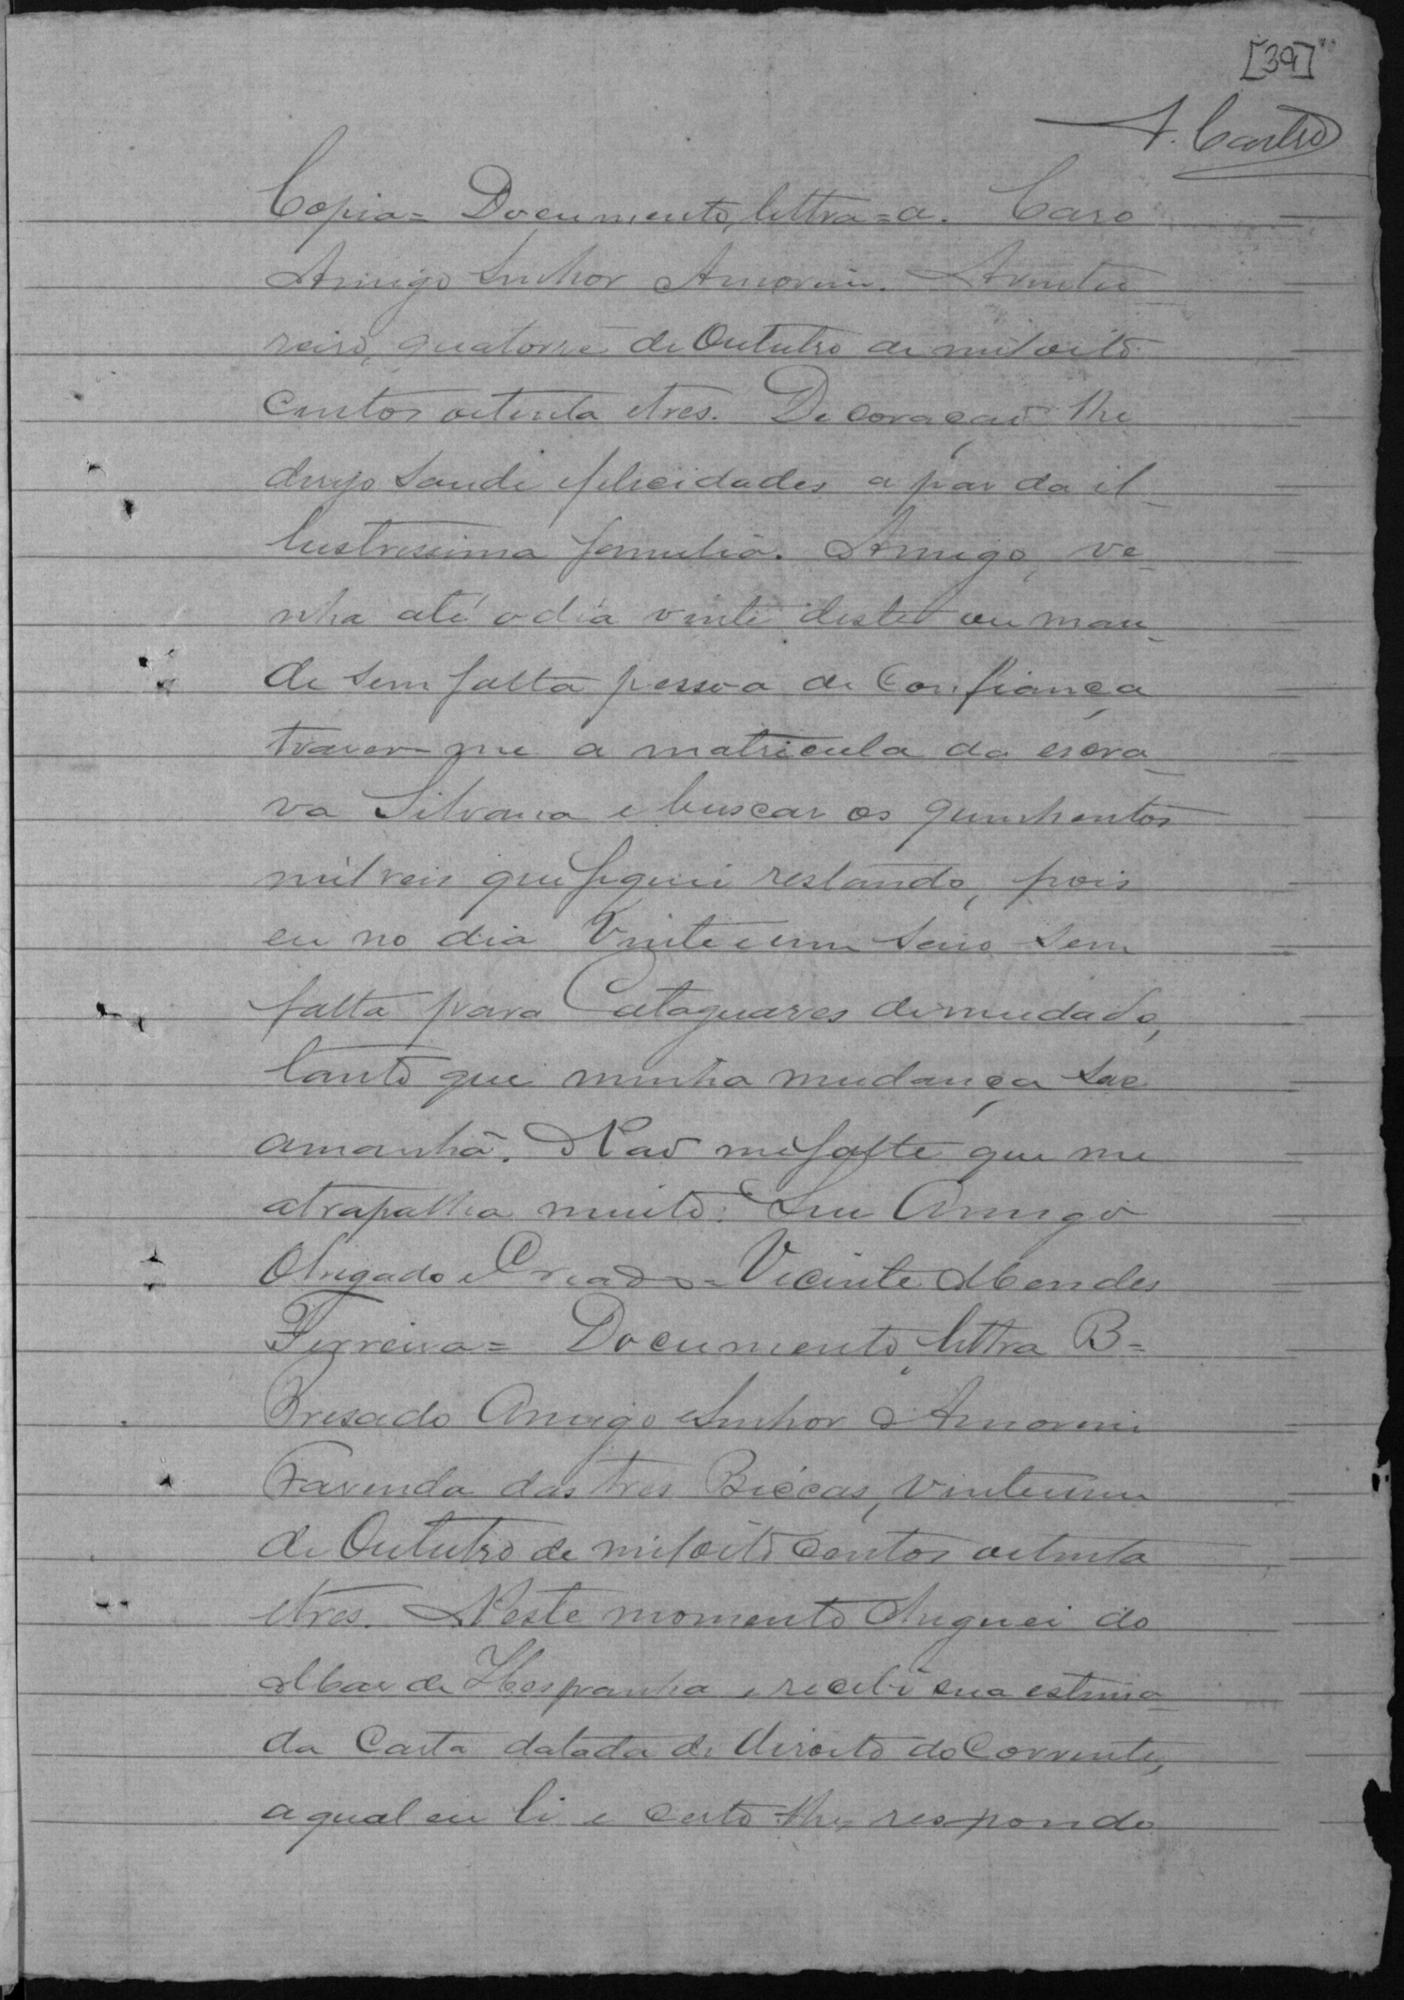 [39]
A. Castro
Copia = Documento, lettra = a. Caro
Amigo Senhor Amorim. Aventu
reiro, quatorze de Outubro de mil oito
centos oitenta etres. De coração lhe
dezejo saude efelicidades a par da il-
lustressima familia. Amigo, ve-
nha até o dia vinte deste ou man-
de sem falta pessoa de confiança
trazer-me a matricula da escra-
va Silvana e buscar os quinhentos
mil reis que fiquei restando, pois
eu no dia vinte e um saio sem
falta para Cataguazes de mudada,
tanto que minha mudança sae
amanhã. Não me falte que me
atrapalha muito. Seu Amigo
Obrigado e Criado = Vicente Mendes
Ferreira = Documento, lettra B =
Presado Amigo e Senhor Amorim
Fazenda das tres Biccas, vinte e um
de Outubro de mil oito centos oitenta
etres. Neste momento cheguei do
Mar de Hespanha e recebi sua estima-
da Carta datada de dezoito do Corrente,
a qual eu li e certo lhe respondo